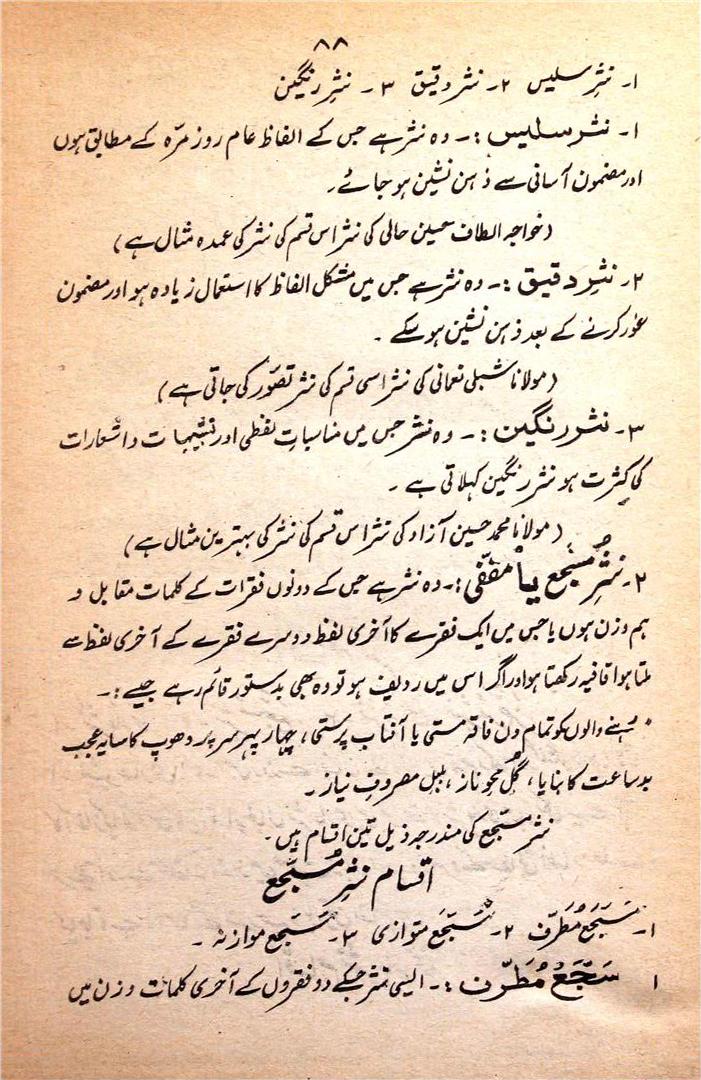 ۸۸
۱۔ نثرِ سلیس ۲۔ نثرِ دقیق ۳۔ نثرِ رنگین
۱۔ نثرِ سلیس :۔ وہ نثر ہے جس کے الفاظ عام روز مرّہ کے مطابق ہوں
اور مضمون آسانی سے ذہن نشین ہو جائے۔
(خواجہ الطاف حسین حالی کی نثر اس قسم کی نثر کی عمدہ مثال ہے)
۲۔ نثرِ دقیق :۔ وہ نثر ہے جس میں مشکل الفاظ کا استعمال زیادہ ہو اور مضمون
غور کرنے کے بعد ذہن نشین ہو سکے۔
(مولانا شبلی نعمانی کی نثر اسی قسم کی نثر تصوّر کی جاتی ہے)
۳۔ نثرِ رنگین :۔ وہ نثر جس میں مناسباتِ لفظی اور تشبیہات و استعارات
کی کثرت ہو نثر رنگین کہلاتی ہے۔
(مولانا محمد حسین آزاد کی نثر اس قسم کی نثر کی بہترین مثال ہے)
۲۔ نثرِ مسجّع یا مقفّٰی :۔ وہ نثر ہے جس کے دونوں فقرات کے کلمات مقابل و
ہم وزن ہوں یا جس میں ایک فقرے کا آخری لفظ دوسرے فقرے کے آخری لفظ سے
ملتا ہوا قافیہ رکھتا ہو اور اگر اس میں ردیف ہو تو وہ بھی بدستور قائم رہے جیسے :۔
رہنے والوں کو تمام دن فاقہ مستی یا آفتاب پرستی، چہار پہر سر پر دھوپ کا سایہ عجب
بد ساعت کا بنایا، گُل محوِ ناز، بلبل مصروفِ نیاز۔
نثر مسجّع کی مندرجہ ذیل تین اقسام ہیں۔
اقسام نثرِ مُسجّع
۱۔ مسَجَع مُطَرّف ۲۔ مسَجّع متوازی ۳۔ مسَجع موازنہ۔
۱ سَجَعُ مُطَرّف :۔ ایسی نثر جسکے دو فقروں کے آخری کلمات وزن میں